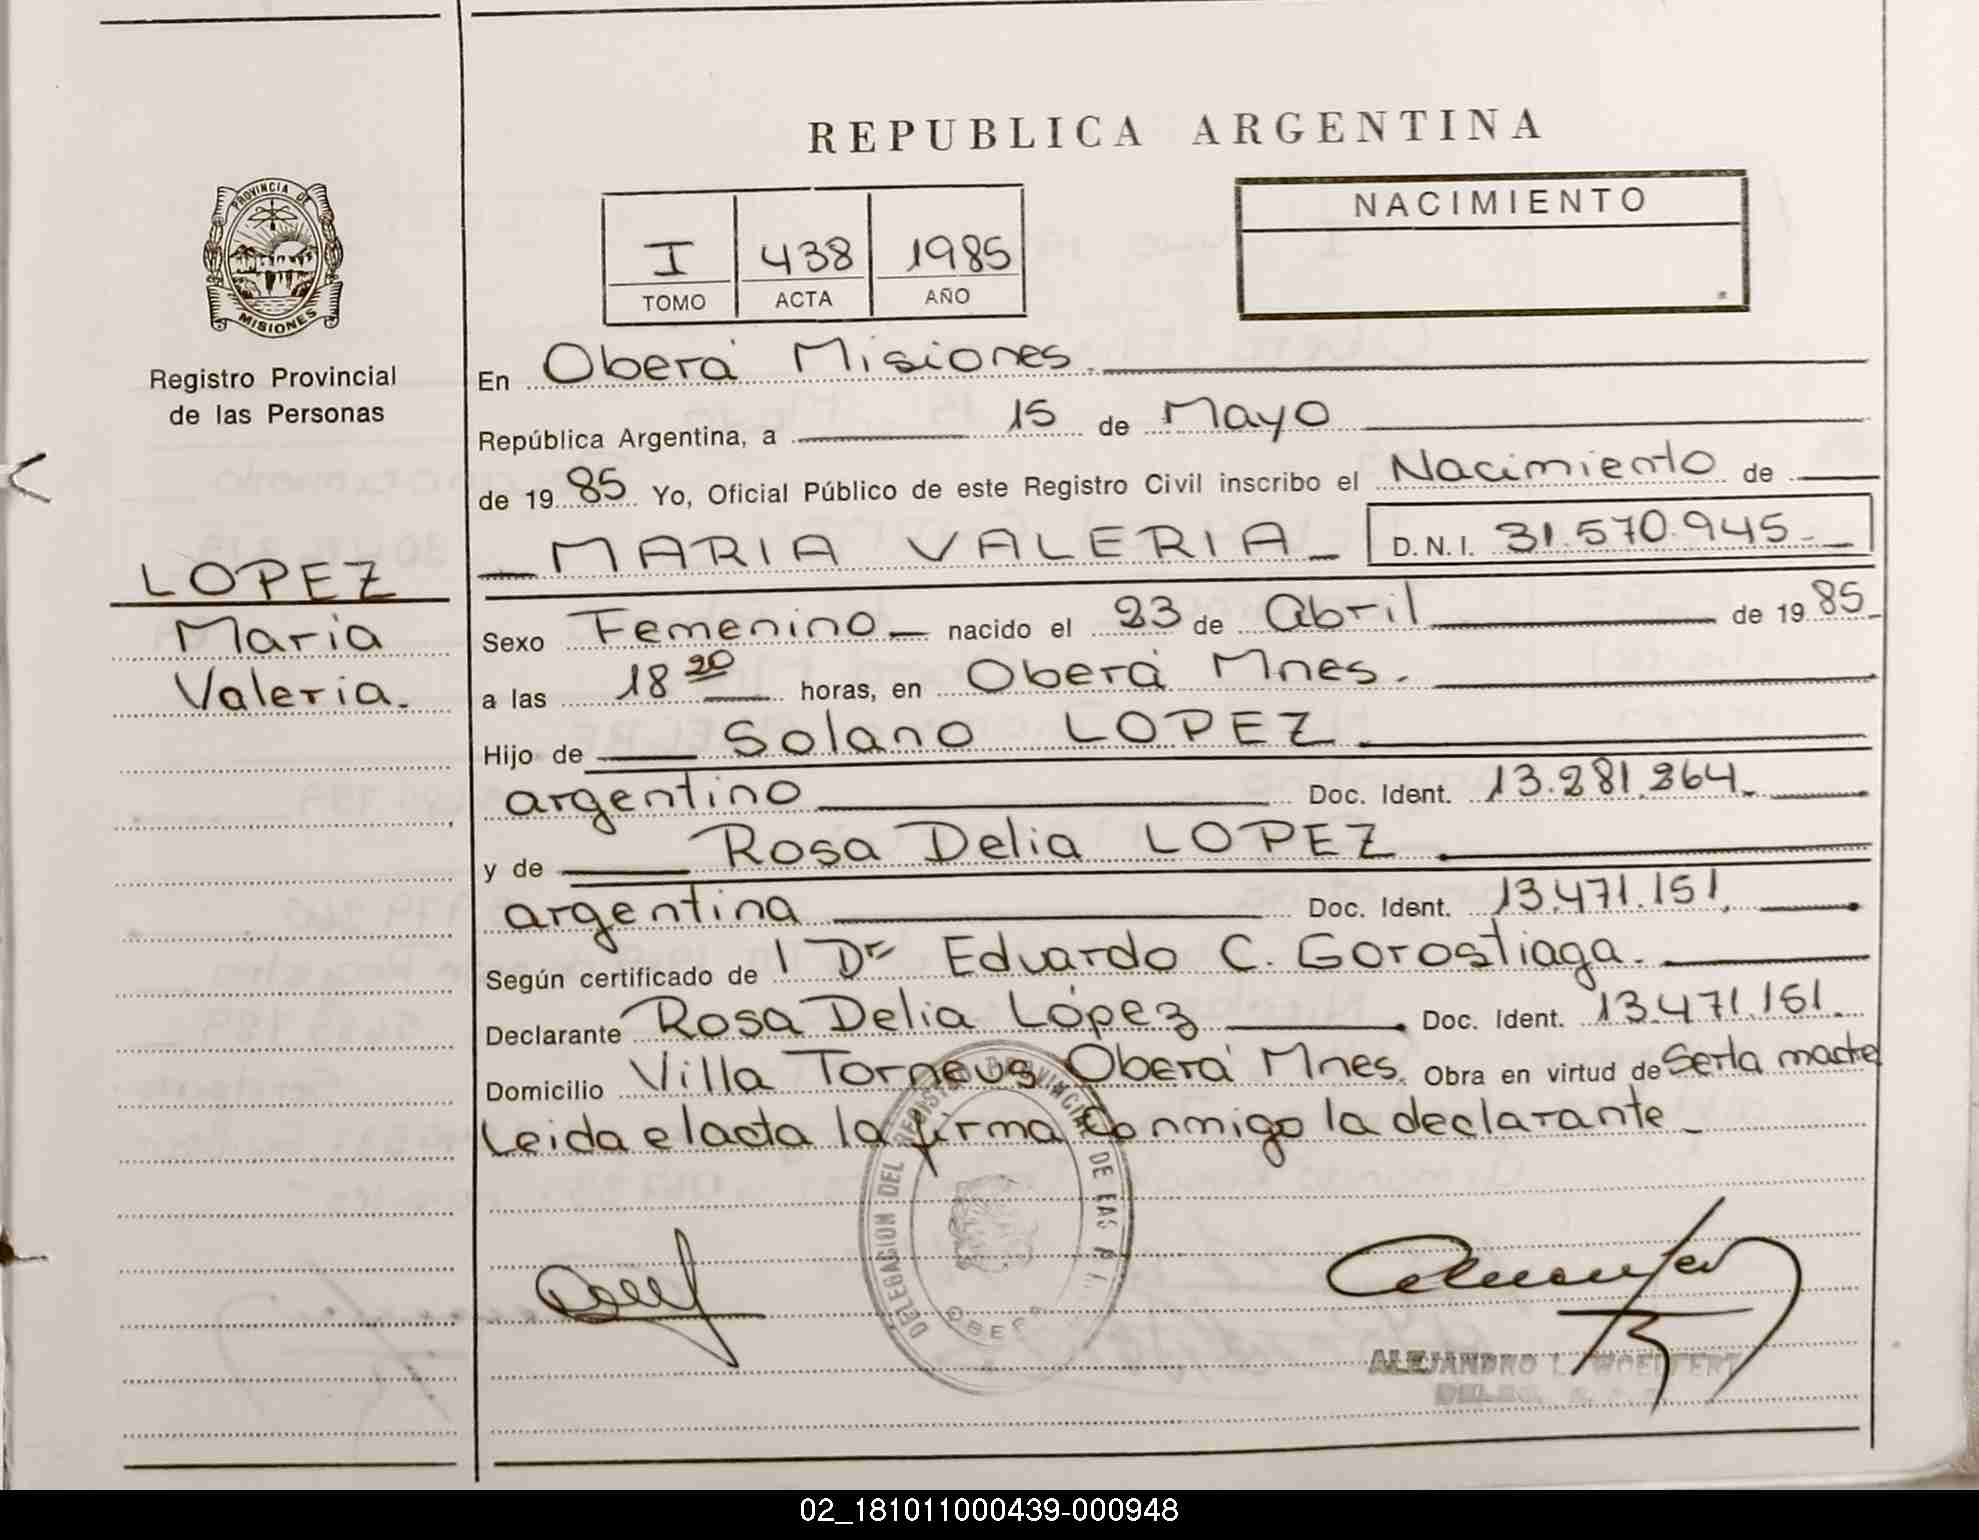 REPUBLICA ARGENTINA
PROVINCIA DE
MISIONES
Registro Provincial
de las Personas
NACIMIENTO
I 438 1985
TOMO ACTA AÑO
En Oberá Misiones.
República Argentina, a 15 de Mayo
de 1985 Yo, Oficial Público de este Registro Civil inscribo el Nacimiento de
MARIA VALERIA D.N.I. 31.570.945
LOPEZ
Maria
Valeria.
Sexo Femenino nacido el 23 de Abril de 1985
a las 18 20 horas, en Oberá Mnes.
Hijo de Solano LOPEZ
argentino Doc. Ident. 13.281.264
y de Rosa Delia LOPEZ
argentina Doc. Ident. 13.471.151
Según certificado de l Dr Eduardo C. Gorostiaga.
Declarante Rosa Delia López Doc. Ident. 13.471.151
Domicilio Villa Torneus Oberá Mnes. Obra en virtud de Serla madre
Leida el acta la firma conmigo la declarante
DELEGACION DEL REGISTRO PROVINCIAL DE LAS
ALEJANDRO L. WOELFERT
02_181011000439-000948